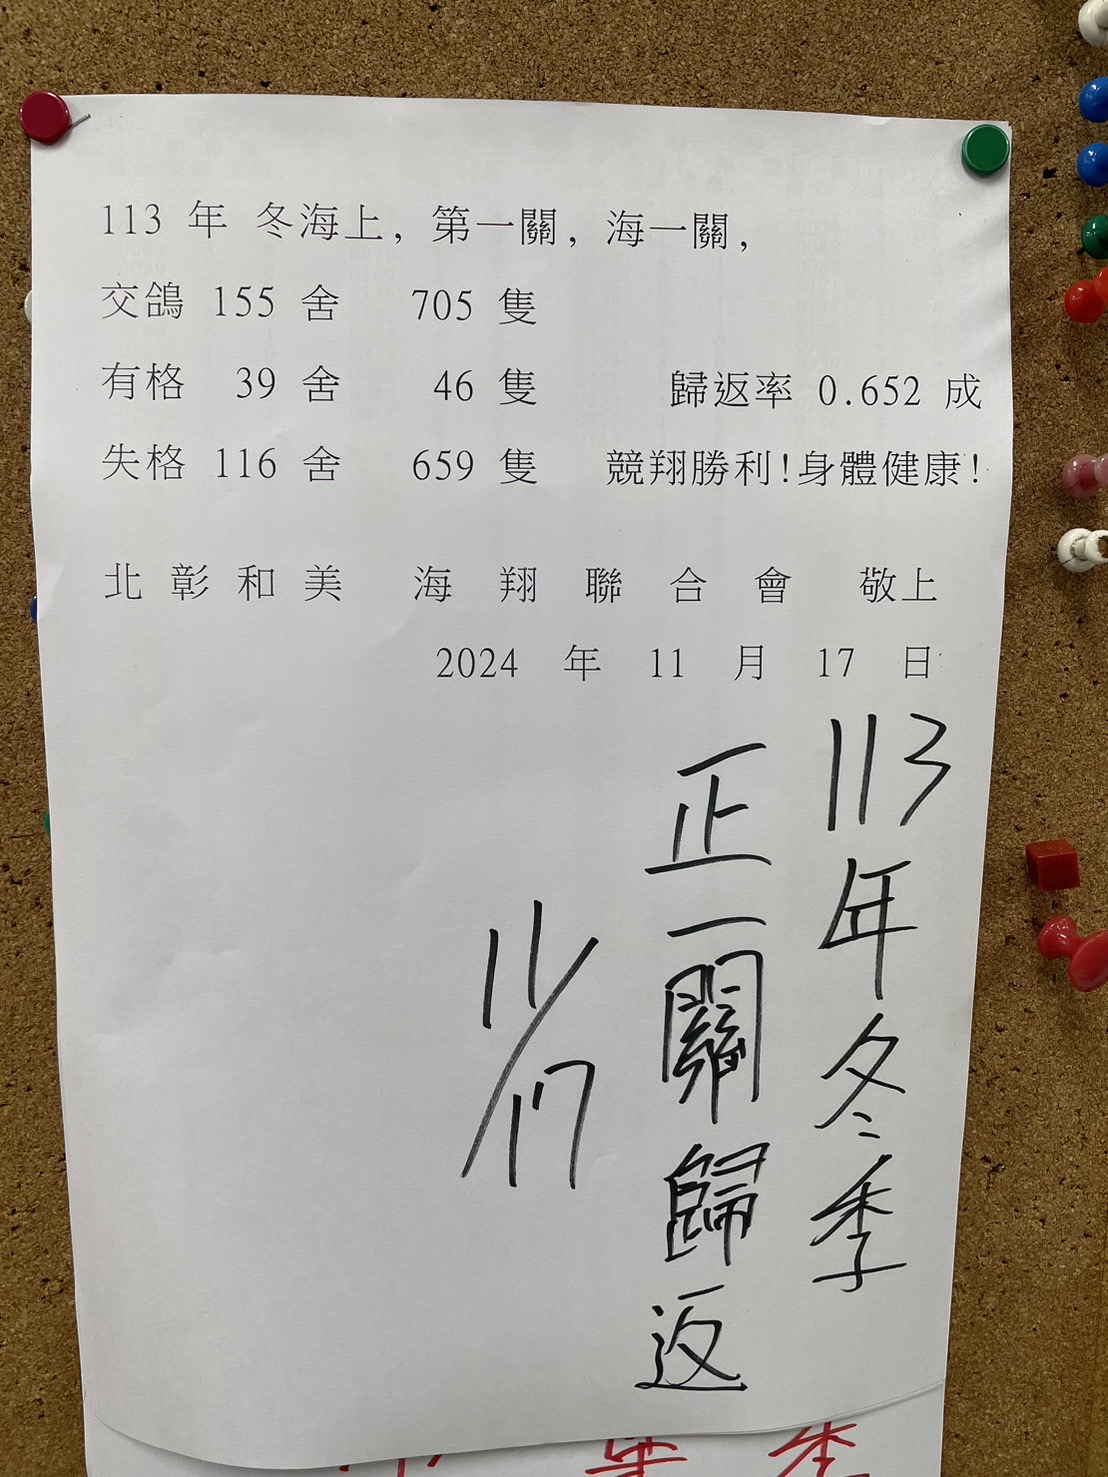 113 年 冬海上, 第一關, 海一關,
交鴿 155 舍 705 隻
有格 39 舍 46 隻 歸返率 0.652 成
失格 116 舍 659 隻 競翔勝利!身體健康!
北彰和美 海翔聯合會 敬上
2024 年 11 月 17 日
113年冬季
正一關歸返
11/17
季